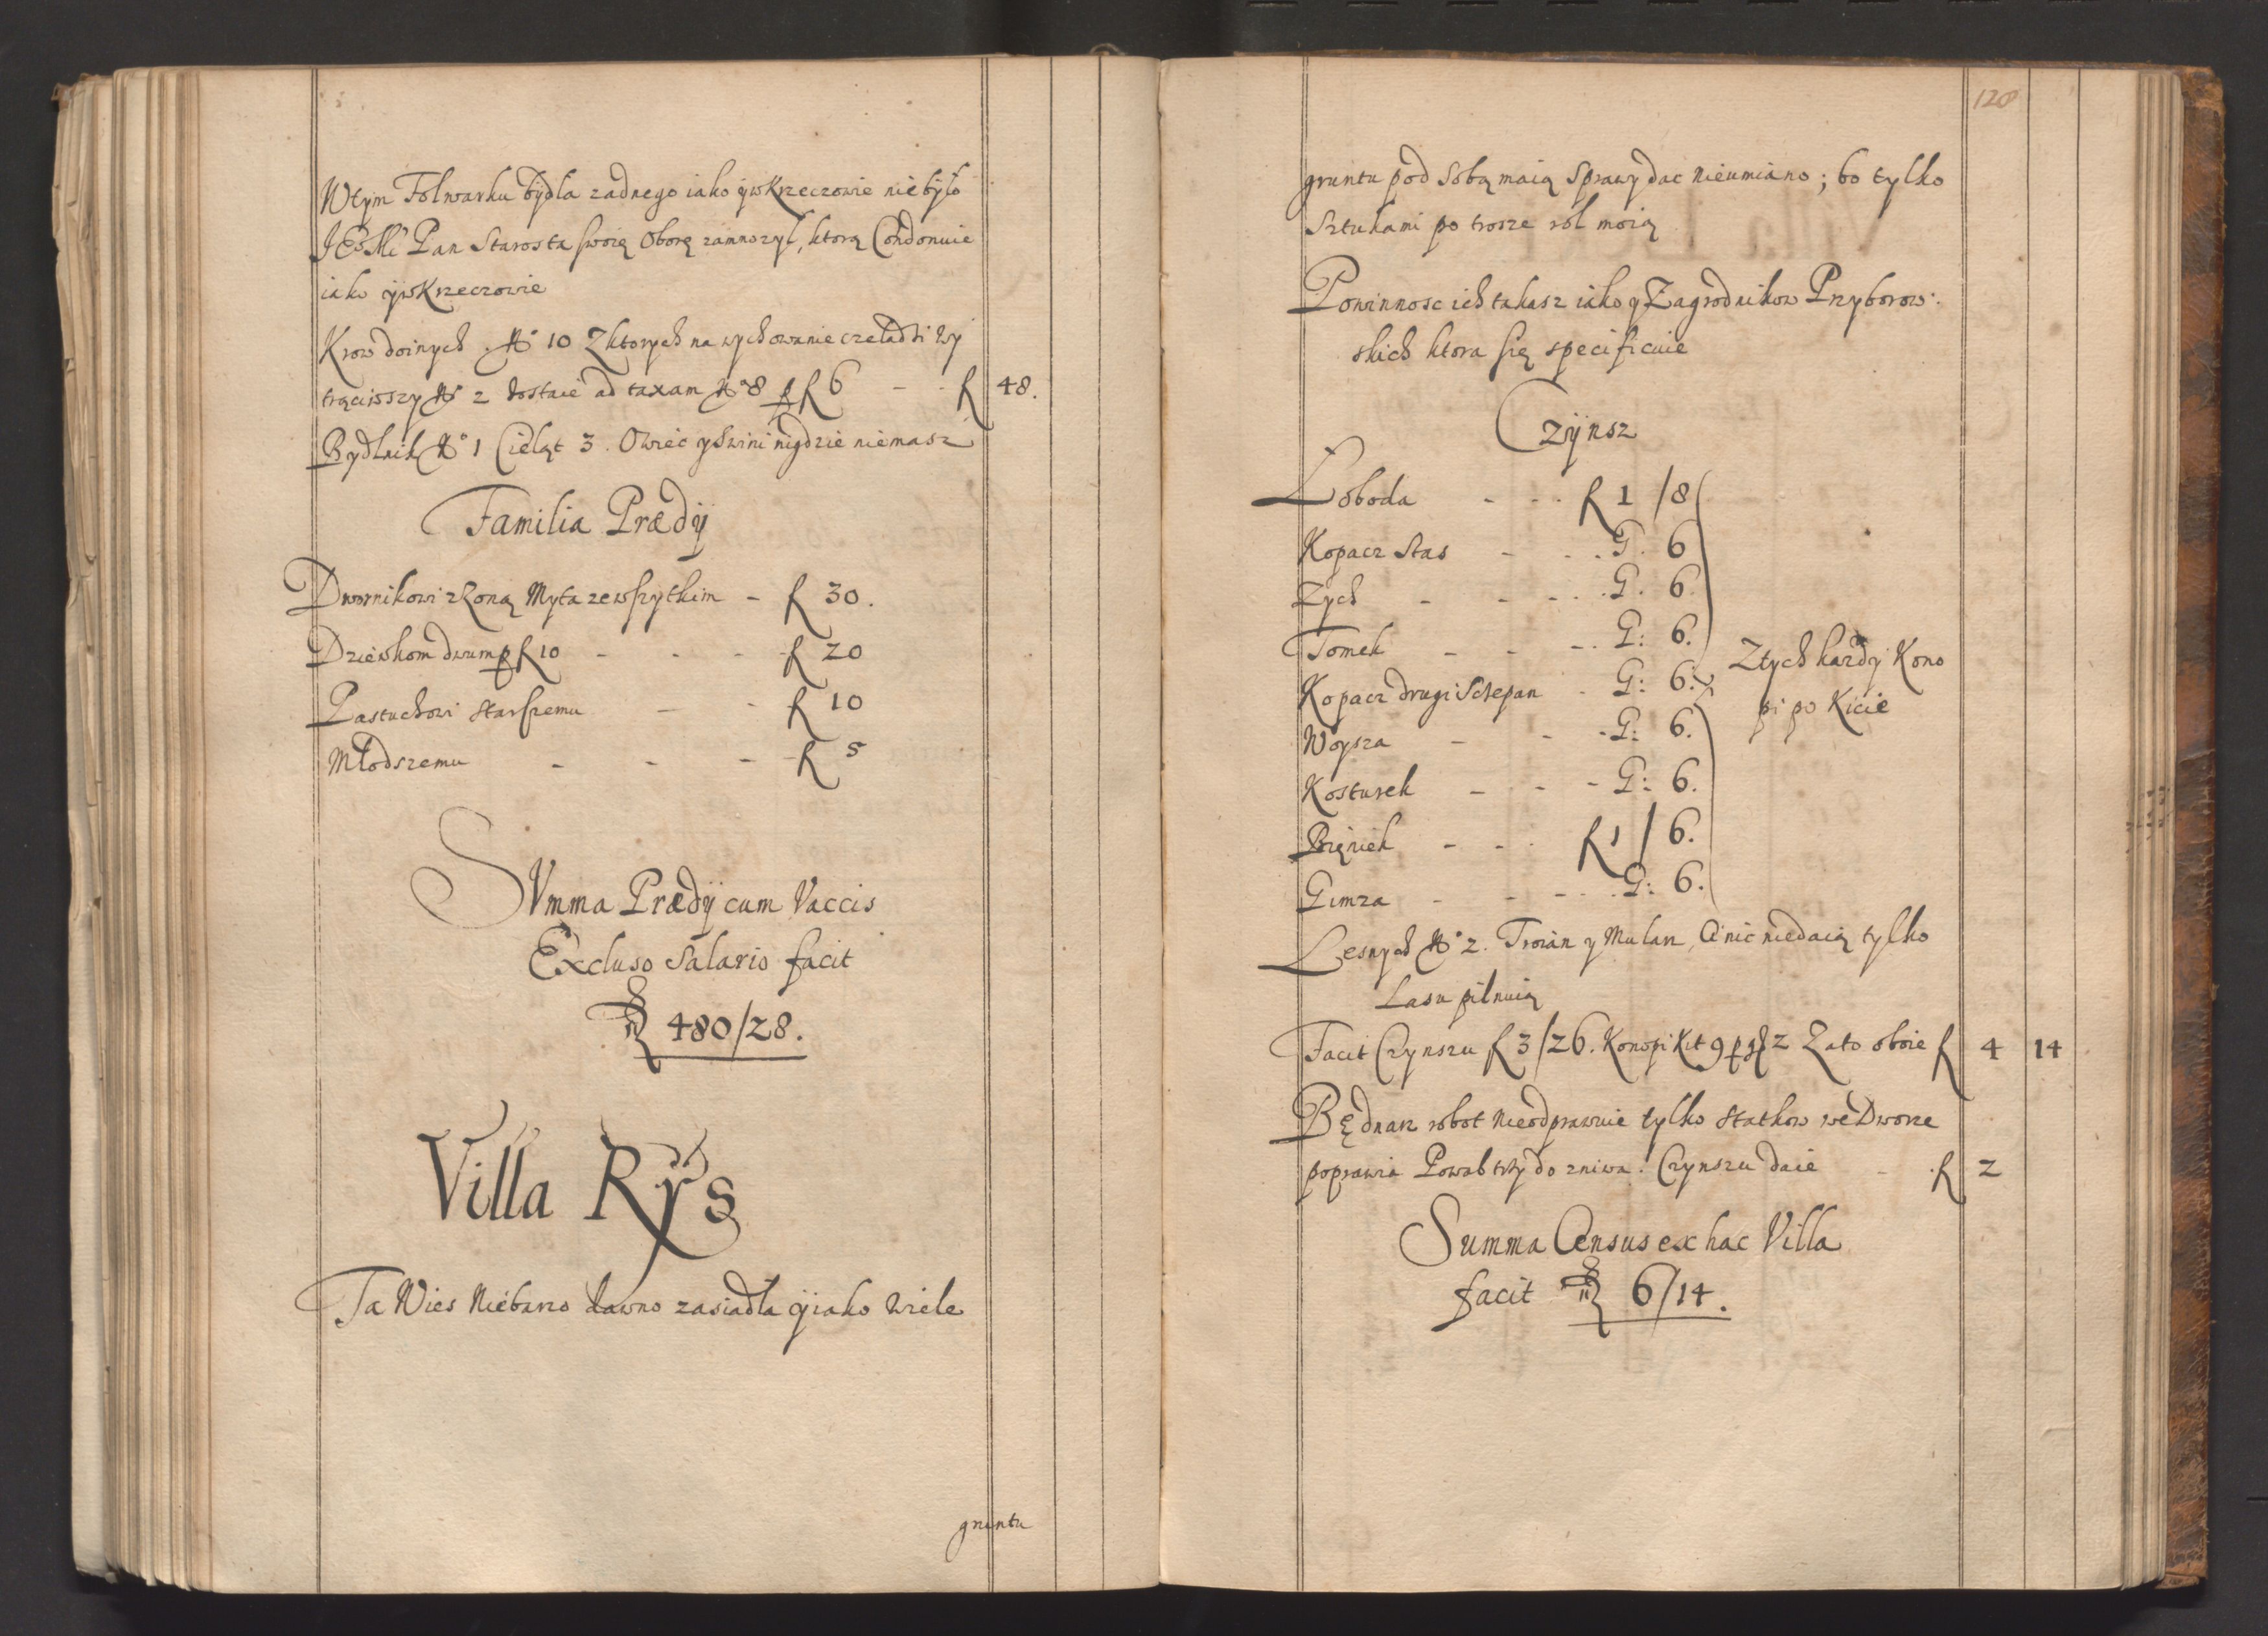 Wtym Folwarku bydła zadnego iako ywKrzeczowie nie było
JEoMć Pan Starosta swoię Oborę zamnozył, ktorą Condonuie
iako ywKrzeczowie
Krow doinych . No 10 Zktorych na wychowanie czeladzi wy
trąciwszy No 2 zostaie ad taxam No 8 p f 6 - - f 48.
Bydlnik No 1 Cieląt 3. Owiec y swini nigdzie niemasz
Familia Prædÿ
Dwornikowi zZoną Myta zewszytkim - f 30.
Dziewkom dwum p f 10 - - - f 20
Pastuchowi starszemu - - f 10
Młodszemu - - - f 5
SVmma Prædÿ cum Vaccis
Excluso Salario facit
480/28.
Villa Rÿs
Ta Wies Niebarzo dawno zasiadła yiako wiele
gruntu
128
gruntu pod sobą maią sprawy dac nieumiano; bo tylko
Sztukami po trosze rol moią
Powinnosc ich takasz iako y Zagrodnikow Przyborow:
skich ktora się specificuie
Czÿnsz
Łoboda - - - f 1 /8
Kopacz Stas - - - G. 6
Zych - - - - G. 6.
Tomek - - - G: 6.
Kopacz drugi Sczepan - G: 6.
Ztych kazdÿ Kono
pi po Kicie
Woysza - - - G: 6.
Kosturek - - - G: 6.
Bięniek - - - f 1 / 6.
Gimza - - - - G: 6.
Lesnych No 2. Troian y Mularz, Ci nic niedaią tylko
Lasu pilnuią
Facit Czynszu f 3/26. Konopi Kit 9 p g 2 Zato oboie f 4 14
Będnarz robot nieodprawuie tylko statkow weDworze
poprawia Powab trzy do zniwa. Czynszu daie - f 2
Summa Census ex hac Villa
facit 6/14.